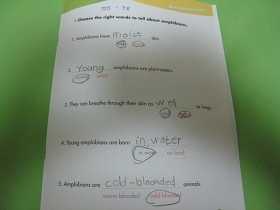 Choose the right words to tell about amphibians.
1. Amphibians have moist skin.
2. Young amphibians are plant-eaters.
3. They can breathe through their skin as well as lungs.
4. Young amphibians are born in water
in water on land
5. Amphibians are cold-blooded animals.
warm-blooded cold-blooded